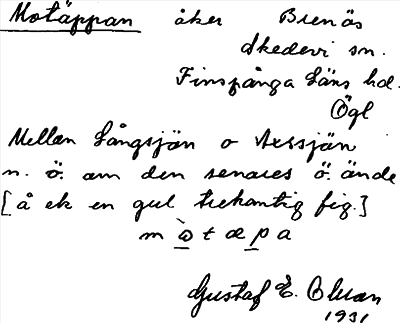 Motäppan åker Brenäs
Skedevi sn.
Finspånga Läns hd.
Ögl
Mellan Långsjön o Axsjön
n. ö. om den senares ö. ände
[å ek en gul trekantig fig.]
m ò t æ p a
Gustaf E. Olsson
1931